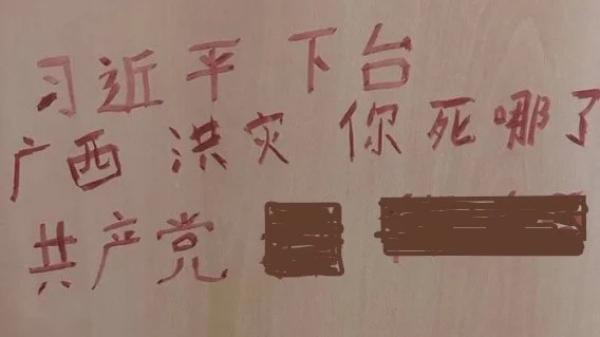 习近平 下台
广西 洪灾 你死哪了
共产党